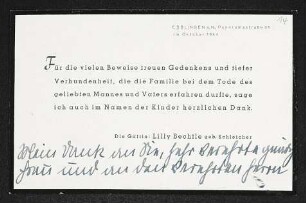 ESSLINGEN a. N.
im Oktober
Für die vielen Beweise treuen Gedenkens und tiefer
Verbundenheit, die die Familie bei dem Tode des
geliebten Mannes und Vaters erfahren durfte, sage
ich auch im Namen der Kinder herzlichen Dank.
Die Gattin: Lilly Bechtle geb. Schleicher
Mein Dank an Sie, sehr verehrte gnädige
Frau und an den verehrten Herrn